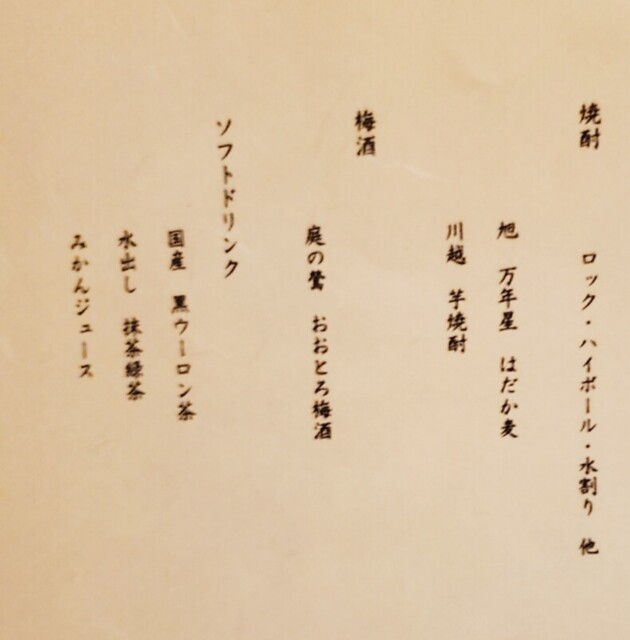 焼酎　ロック・ハイボール・水割り　他
旭　万年星　はだか麦
川越　芋焼酎
梅酒
庭の鶯　おおとろ梅酒
ソフトドリンク
国産　黒ウーロン茶
水出し　抹茶緑茶
みかんジュース